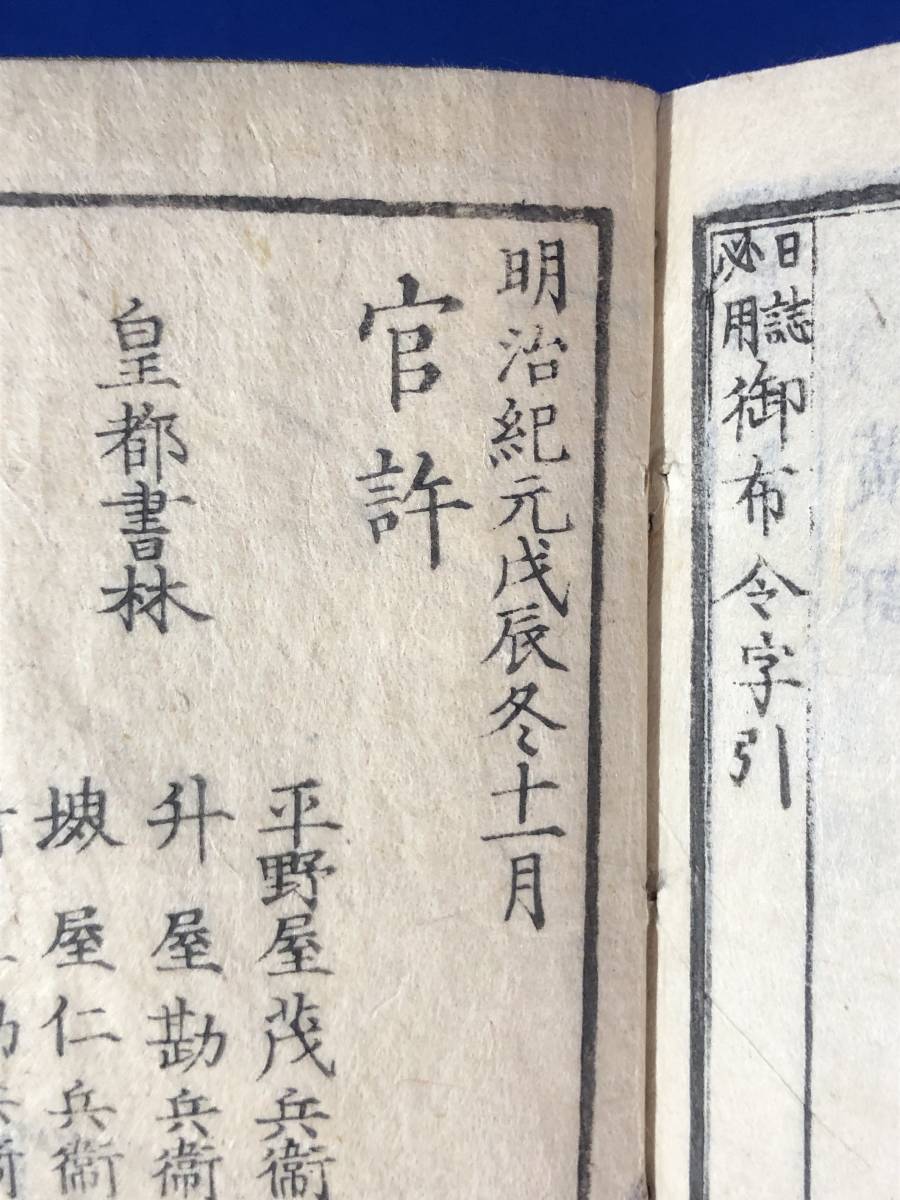 日誌
必用
御布令字引
明治紀元戊辰冬十一月
官許
皇都書林
平野屋茂兵衞
升屋勘兵衞
塊屋仁兵衞